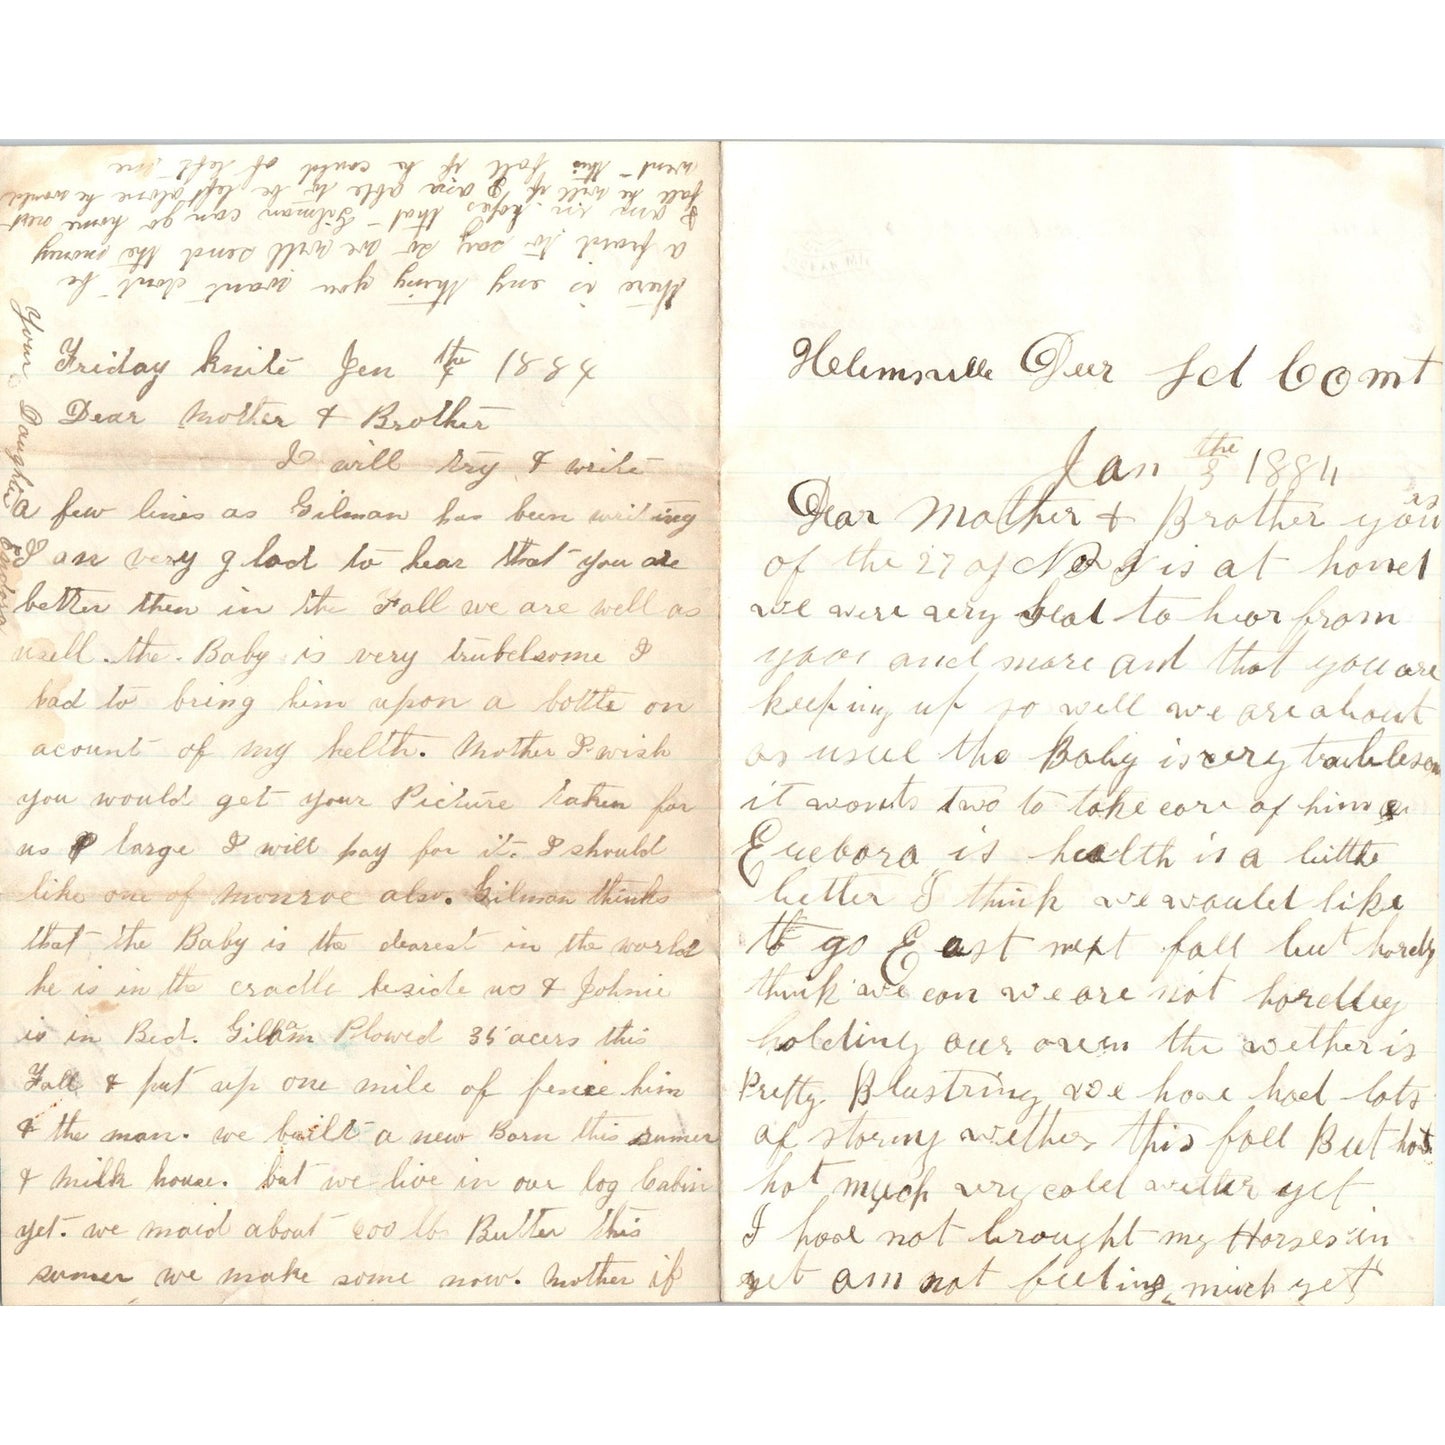 Friday knite Jen 4 the 1884
Dear Mother & Brother
I will try & write
a few lines as Gilman has been writing
I am very glad to hear that you are
better then in the Fall we are well as
usell. the Baby is very trubelsome I
had to bring him upon a bottle on
acount of my helth. Mother I wish
you would get your Picture taken for
us large I will pay for it. I should
like one of Monroe also. Gilman thinks
that the Baby is the dearest in the world
he is in the cradle beside us & Johnie
is in Bed. Gilman Plowed 35 acers this
Fall & put up one mile of fence him
& the man. we built a new Barn this sumer
& milk house. but we live in our log Cabin
yet. we maid about 200 lb Butter this
sumer we make some now. Mother if
there is eny thing you want dont be
a fraid to say so we will send the money
I am in hopes that Gilman can go home next
fall he will if I am able to be left alone he would
went this fall if he could of left me
Your Daughter Eudora
Helemsville Deer Lod Co Mt
Jan the 3 1884
Dear Mother & Brother yours
of the 27 of Nov is at hand
we were very glad to hear from
you and more and that you are
keeping up so well we are about
as usuel the Baby is very troublesom
it wonts two to take care of him
Euebora is health is a little
better I think we would like
to go East next fall but hardly
think we can we are not hardley
holding our own the wether is
Pretty Blustring we have had lots
of stormy wether this fall But not
hot much very cold wether yet
I have not brought my Horses in
yet am not feeling much yet